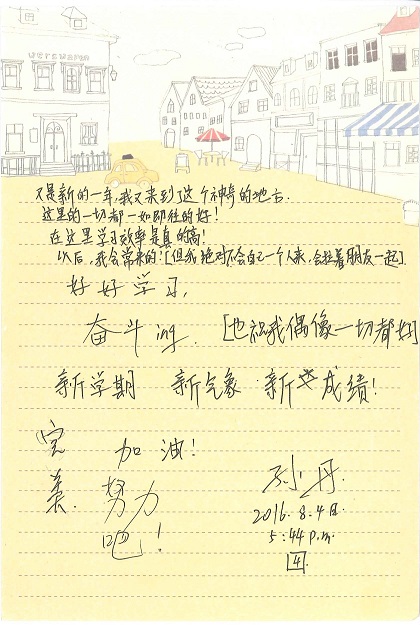 又是新的一年,我又来到了这个神奇的地方.
这里的一切都一如既往的好!
在这里学习效率是真的高!
以后,我会常来的![但我绝对不会自己一个人来,会拉着朋友一起]
好好学习,
奋斗ing. [也祝我偶像一切都好]
新学期 新气象 新成绩!
完美. 加油!
努力吧!
孙丹.
2016.8.4日.
5:44p.m.
4